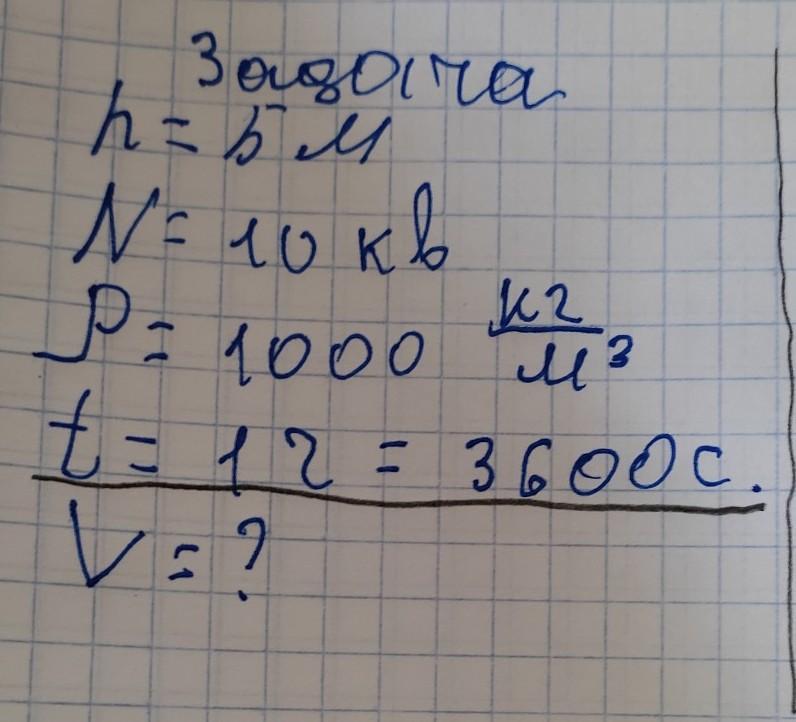 Задача
h = 5 м
N = 10 кв
ρ = 1000 кг/м³
t = 1 г = 3600 с.
V = ?